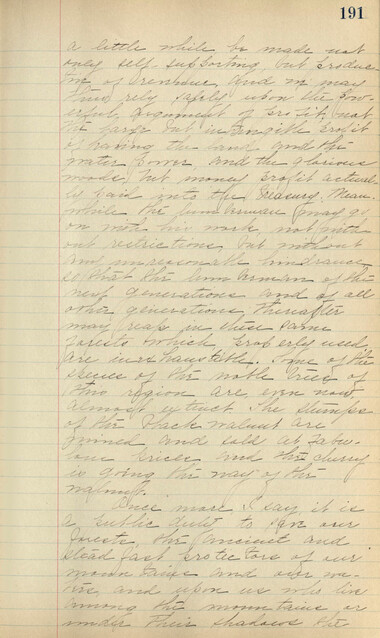 191
a little while be made not
only self-supporting but produc-
tive of revenue, and we may
thus rely safely upon the pow-
erful argument of profit, not
the large but intangible profit
of having the land and the
water power and the glorious
woods, but money profit actual-
ly paid into the Treasury. Mean-
while the lumberman may go
on with his work, not with-
out restrictions, but without
any unreasonable hindrance
so that the lumberman of the
next generations and of all
other generations thereafter
may reap in these same
forests which properly used
are inexhaustible. Some of the
species of the noble trees of
this region are even now
almost extinct. The stumps
of the black walnut are
mined and sold at fabu-
lous prices and the cherry
is going the way of the
walnut.
Once more I say, it is
a public duty to save our
forests, the ancient and
steadfast protectors of our
mountains and our wa-
ters, and upon us who live
among the mountains or
under their shadows the